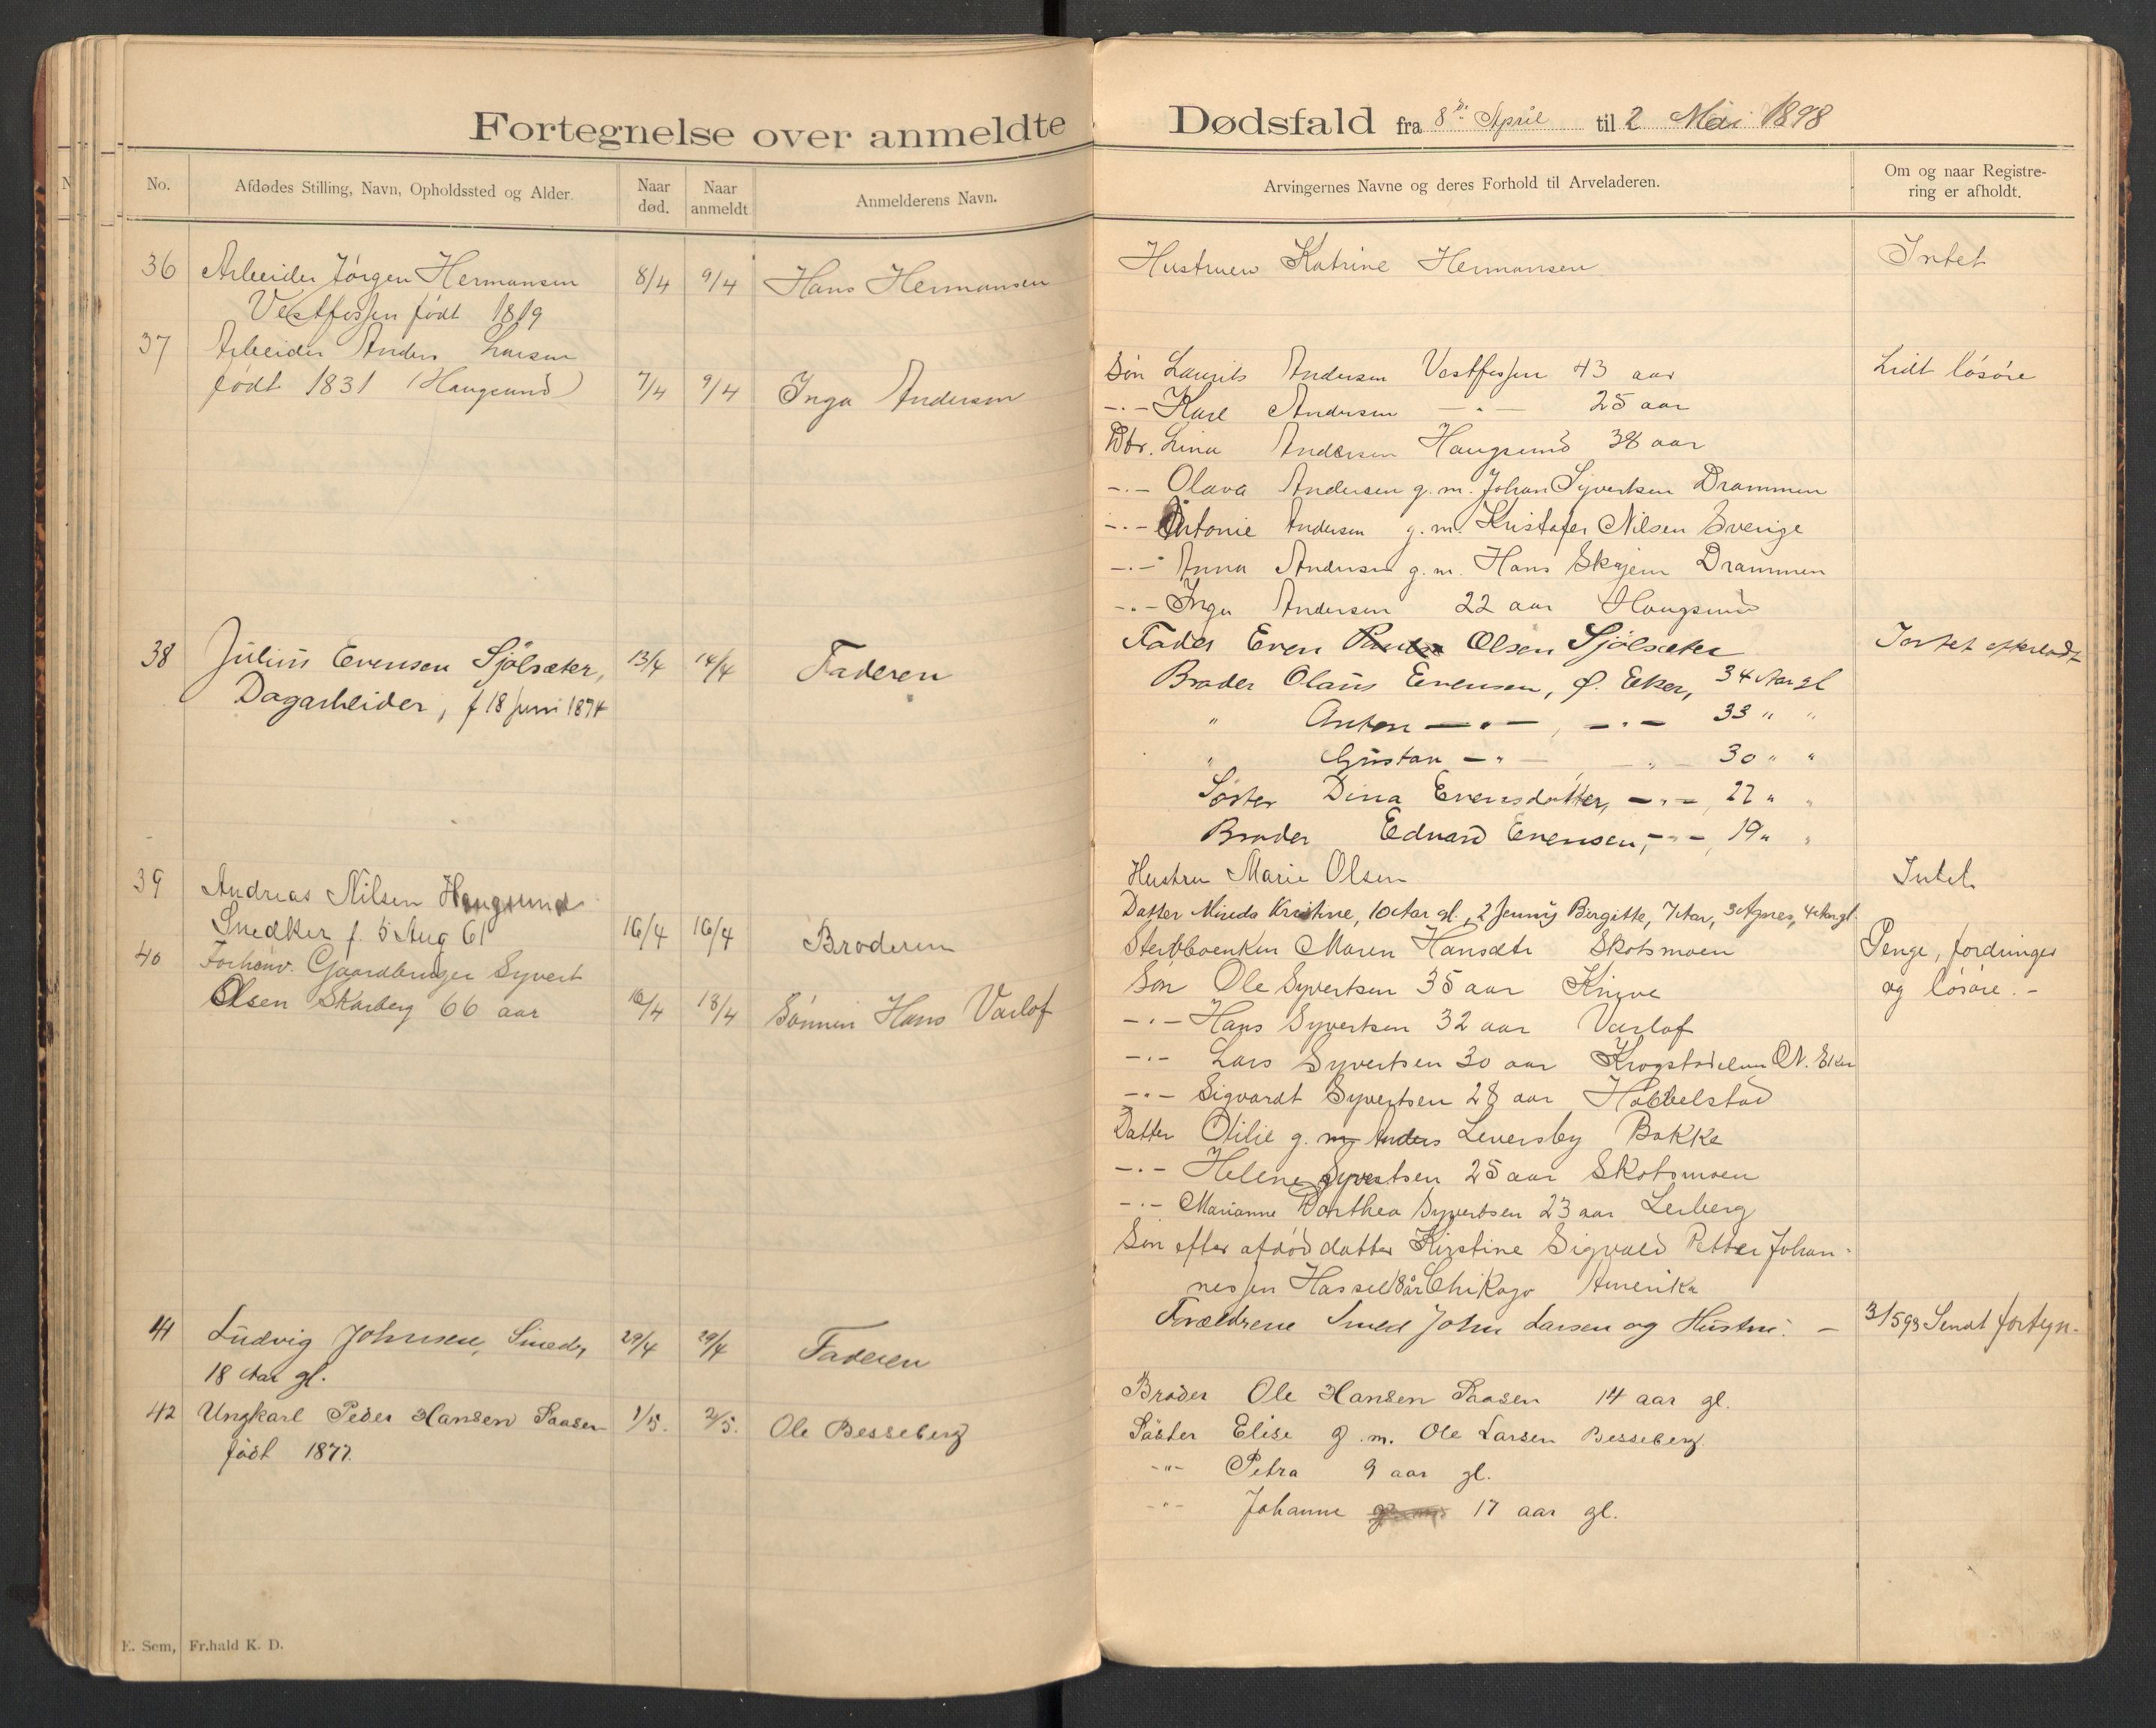 Fortegnelse over anmeldte
No.
Afdødes Stilling, Navn, Opholdssted og Alder.
Naar død.
Naar anmeldt
Anmelderens Navn.
36 Arbeider Jørgen Hermansen 8/4 9/4 Hans Hermansen
Vestfossen født 1819
37 Arbeider Anders Larsen
født 1831 (Haugsund) 7/4 9/4 Inga Andersen
38 Julius Evensen Sjølsæter, 13/4 14/4 Faderen
Dagarbeider, f 18 Juni 1874
39 Andreas Nilsen Haugsund
Snedker f. 5 Aug 61 16/4 16/4 Broderen
40 Forhenv. Gaardbruger Syvert
Olsen Skarberg 66 aar 16/4 18/4 Sønnen Hans Varlof
41 Ludvig Johnsen, Smed, 29/4 29/4 Faderen
18 Aar gl.
42 Ungkarl Peder Hansen Saasen 1/5. 2/5. Ole Besseberg
født 1877.
E. Sem, Fr.hald K. D.
Dødsfald fra 8de April til 2 Mai 1898
Arvingernes Navne og deres Forhold til Arveladeren.
Om og naar Registre-
ring er afholdt.
Hustruen Katrine Hermansen Intet
Søn Laurits Andersen Vestfossen 43 aar Lidt løsøre
-.- Karl Andersen -.- 25 aar
Dtr. Lina Andersen Haugsund 38 aar
-.- Olava Andersen g.m. Johan Syvertsen Drammen
-.- Antonie Andersen g.m. Kristofer Nilsen Sverige
-.- Anna Andersen g.m. Hans Skjem Drammen
-.- Inga Andersen 22 aar Haugsund
Fader Even Olsen Sjølsæter Intet efterladt
Broder Olaus Evensen, Ø. Eker, 34 Aar gl
" Anton -.-, -.- 33 " "
" Gustav -"- -"- 30 " "
Søster Dina Evensdatter, -"-, 22 " "
Broder Edvard Evensen, -"-, 19 " "
Hustru Marie Olsen Intet
Datter Minda Kristine, 10 Aar gl., 2 Jenny Birgitte, 7 Aar, 3 Agnes, 4 Aar gl.
Sterbboenken Maren Hansdtr Skotsmoen Penge, fordringer
Søn Ole Syvertsen 35 aar Knive og løsøre. -
-.- Hans Syvertsen 32 aar Varlof
-.- Lars Syvertsen 30 aar Krogstadelven N. Eker
-.- Sigvardt Syvertsen 28 aar Hobbelstad
Datter Otilie g. m. Anders Leversby Bakke
-.- Helene Syvertsen 25 aar Skotsmoen
-.- Marianne Dorthea Syvertsen 23 aar Lerberg
Søn efter afdød datter Kirstine Sigvald Petter Johan-
nessen Hassel 8 år Chikago Amerika
Forældrene Smed John Larsen og Hustru. - 3/5 98 Sendt fortegn.
Broder Ole Hansen Saasen 14 aar gl.
Søster Elise g.m. Ole Larsen Besseberg
-"- Petra 9 aar gl.
-"- Johanne 17 aar gl.